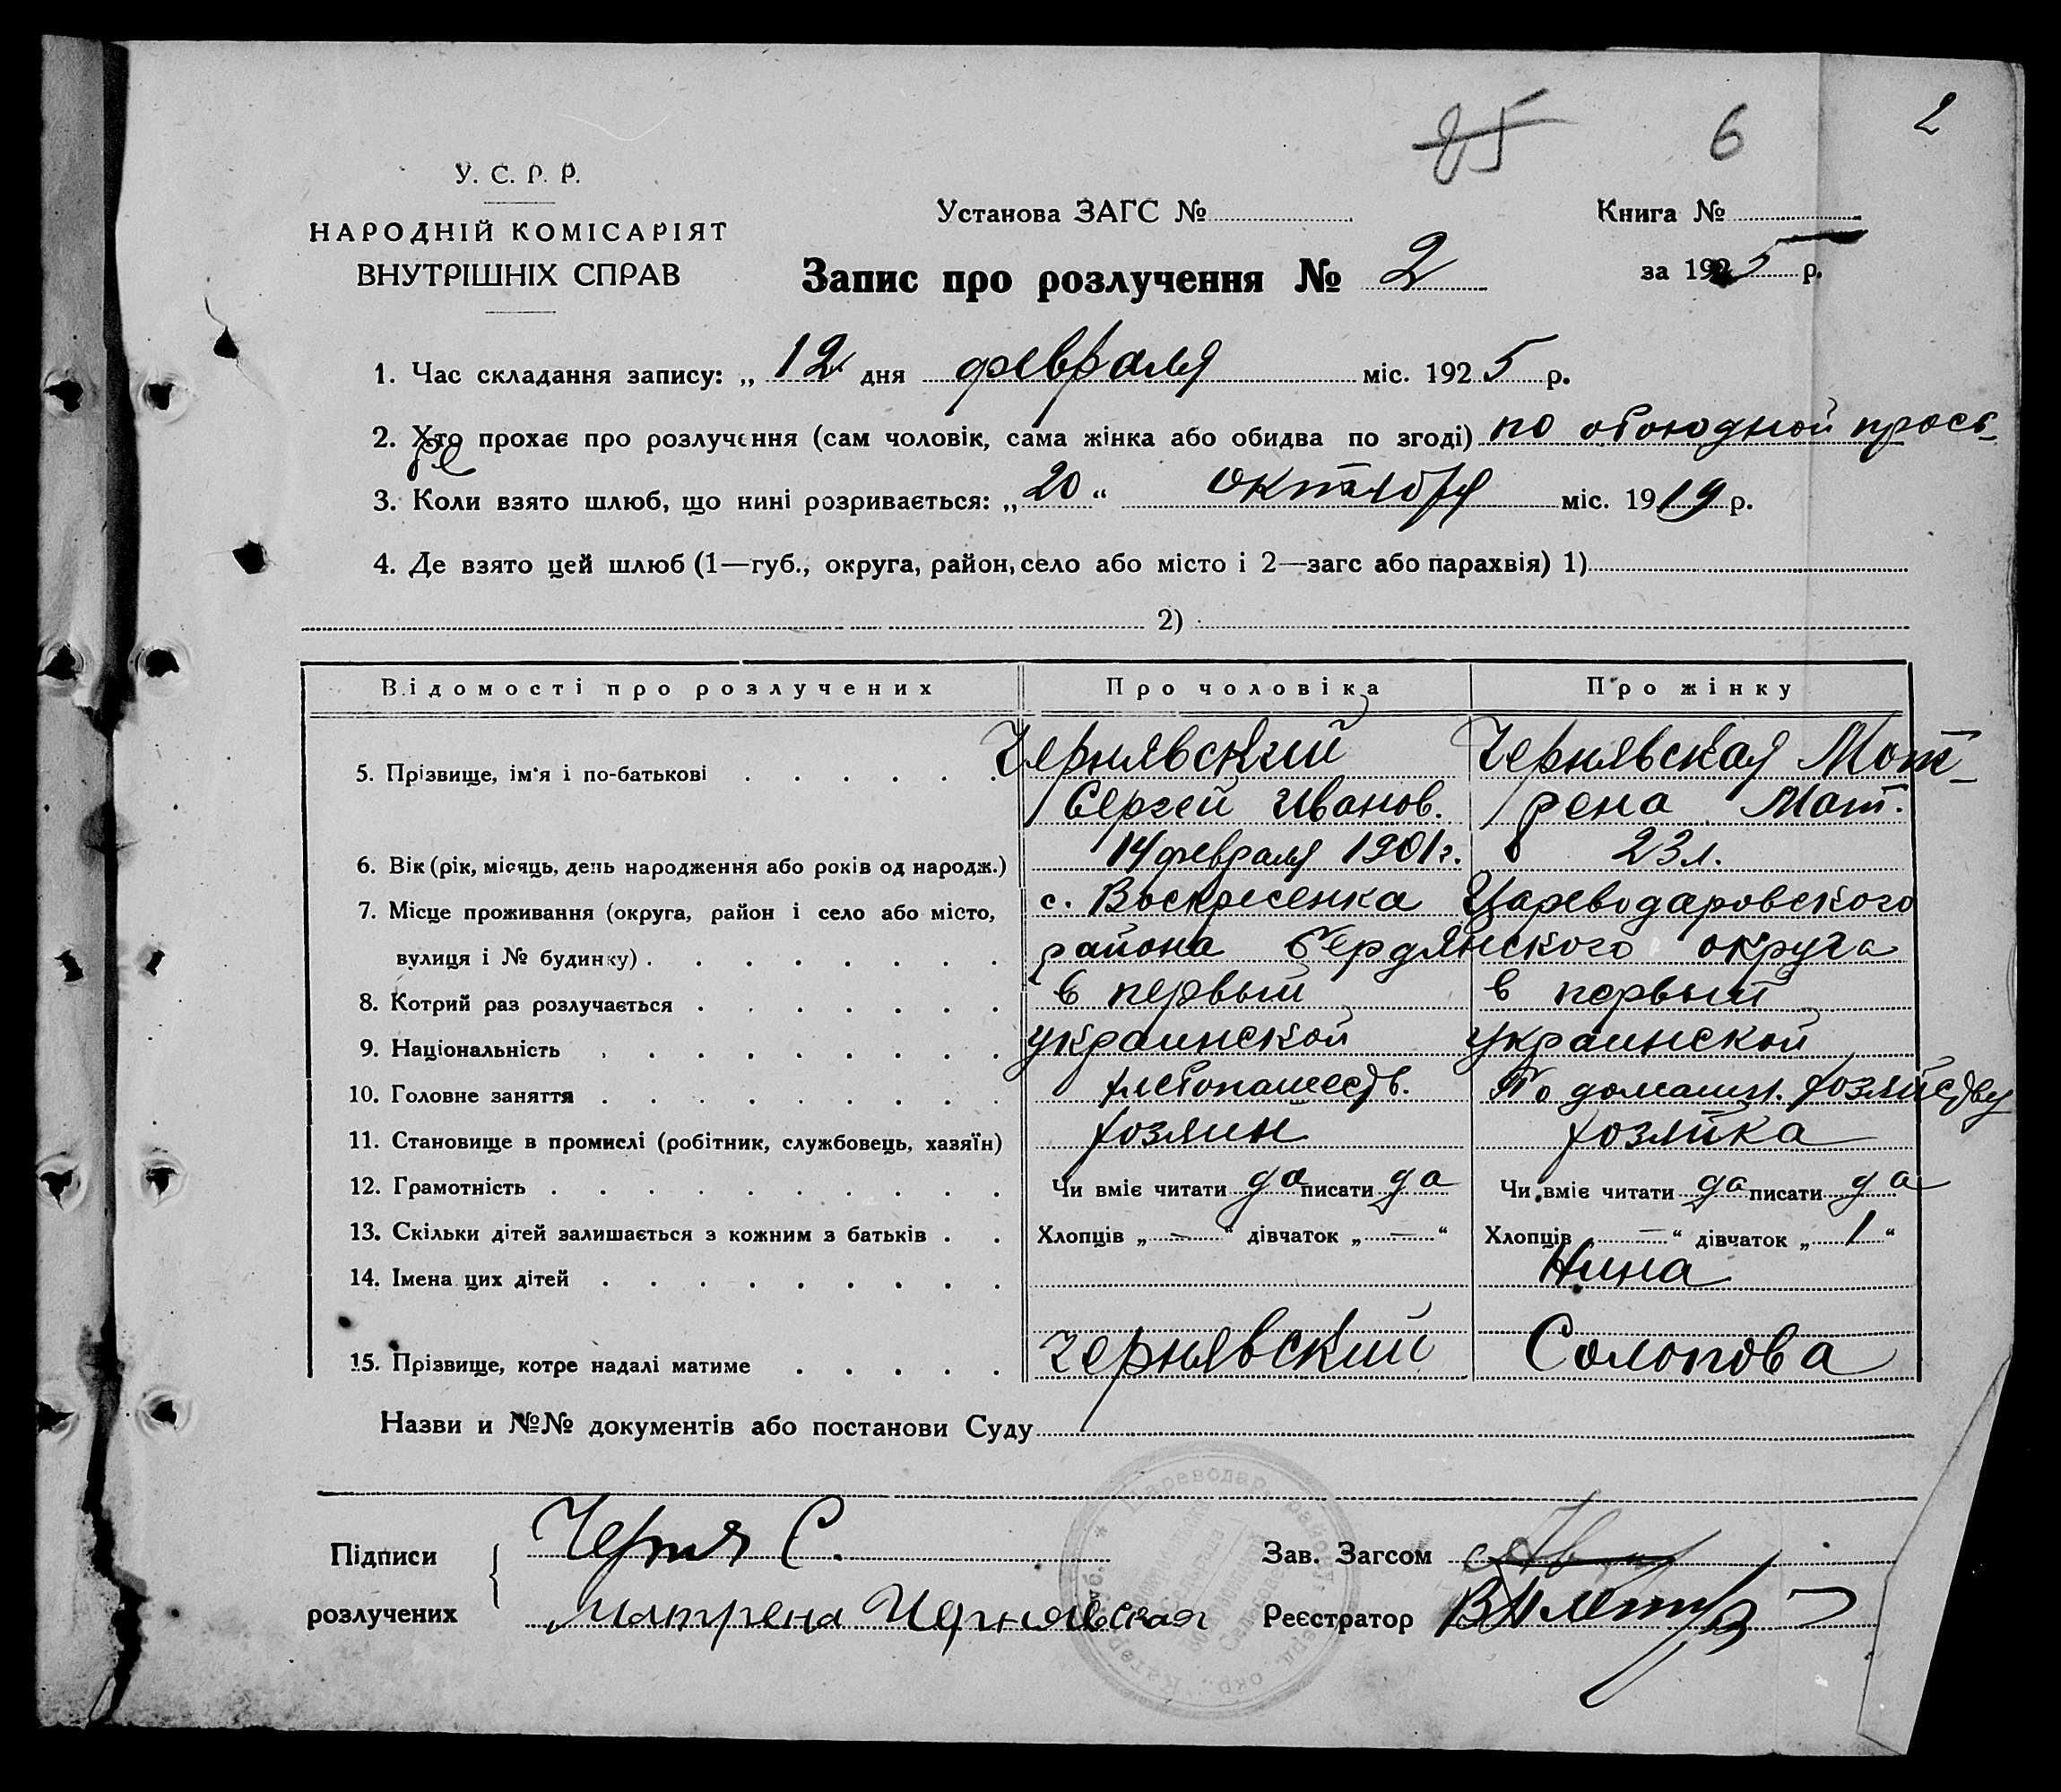 25 6 2
У. С. Р. Р.
НАРОДНІЙ КОМІСАРІЯТ
ВНУТРІШНІХ СПРАВ
Установа ЗАГС №
Книга №
Запис про розлучення № 2
за 1925 р.
1. Час складання запису: „ 12 дня февраля міс. 1925 р.
2. Хто прохає про розлучення (сам чоловік, сама жінка або обидва по згоді) по обоюдной прось-
бе
3. Коли взято шлюб, що нині розривається: „ 20 “ октября міс. 1919 р.
4. Де взято цей шлюб (1—губ., округа, район, село або місто і 2—загс або парахвія) 1)
2)
Відомості про розлучених Про чоловіка Про жінку
5. Прізвище, ім'я і по-батькові Чернявский Чернявская Мот-
Сергей Иванов. рена Мат.
6. Вік (рік, місяць, день народження або років од народж.) 14 февраля 1901 г. 23 л.
7. Місце проживання (округа, район і село або місто, с. Воскресенка Цареводаровского
вулиця і № будинку) района Бердянского округа
8. Котрий раз розлучається в первый в первый
9. Національність украинской украинской
10. Головне заняття хлебопашеств. По домашн. хозяйству
11. Становище в промислі (робітник, службовець, хазяїн) хозяин хозяйка
12. Грамотність Чи вміє читати да писати да Чи вміє читати да писати да
13. Скільки дітей залишається з кожним з батьків Хлопців „ — “ дівчаток „ — “ Хлопців „ — “ дівчаток „ 1 “
14. Імена цих дітей Нина
15. Прізвище, котре надалі матиме Чернявский Солопова
Назви и №№ документів або постанови Суду
Підписи Черня С. Зав. Загсом
розлучених Матрена Чернявская Реєстратор
Цареводар. район
Сільрада